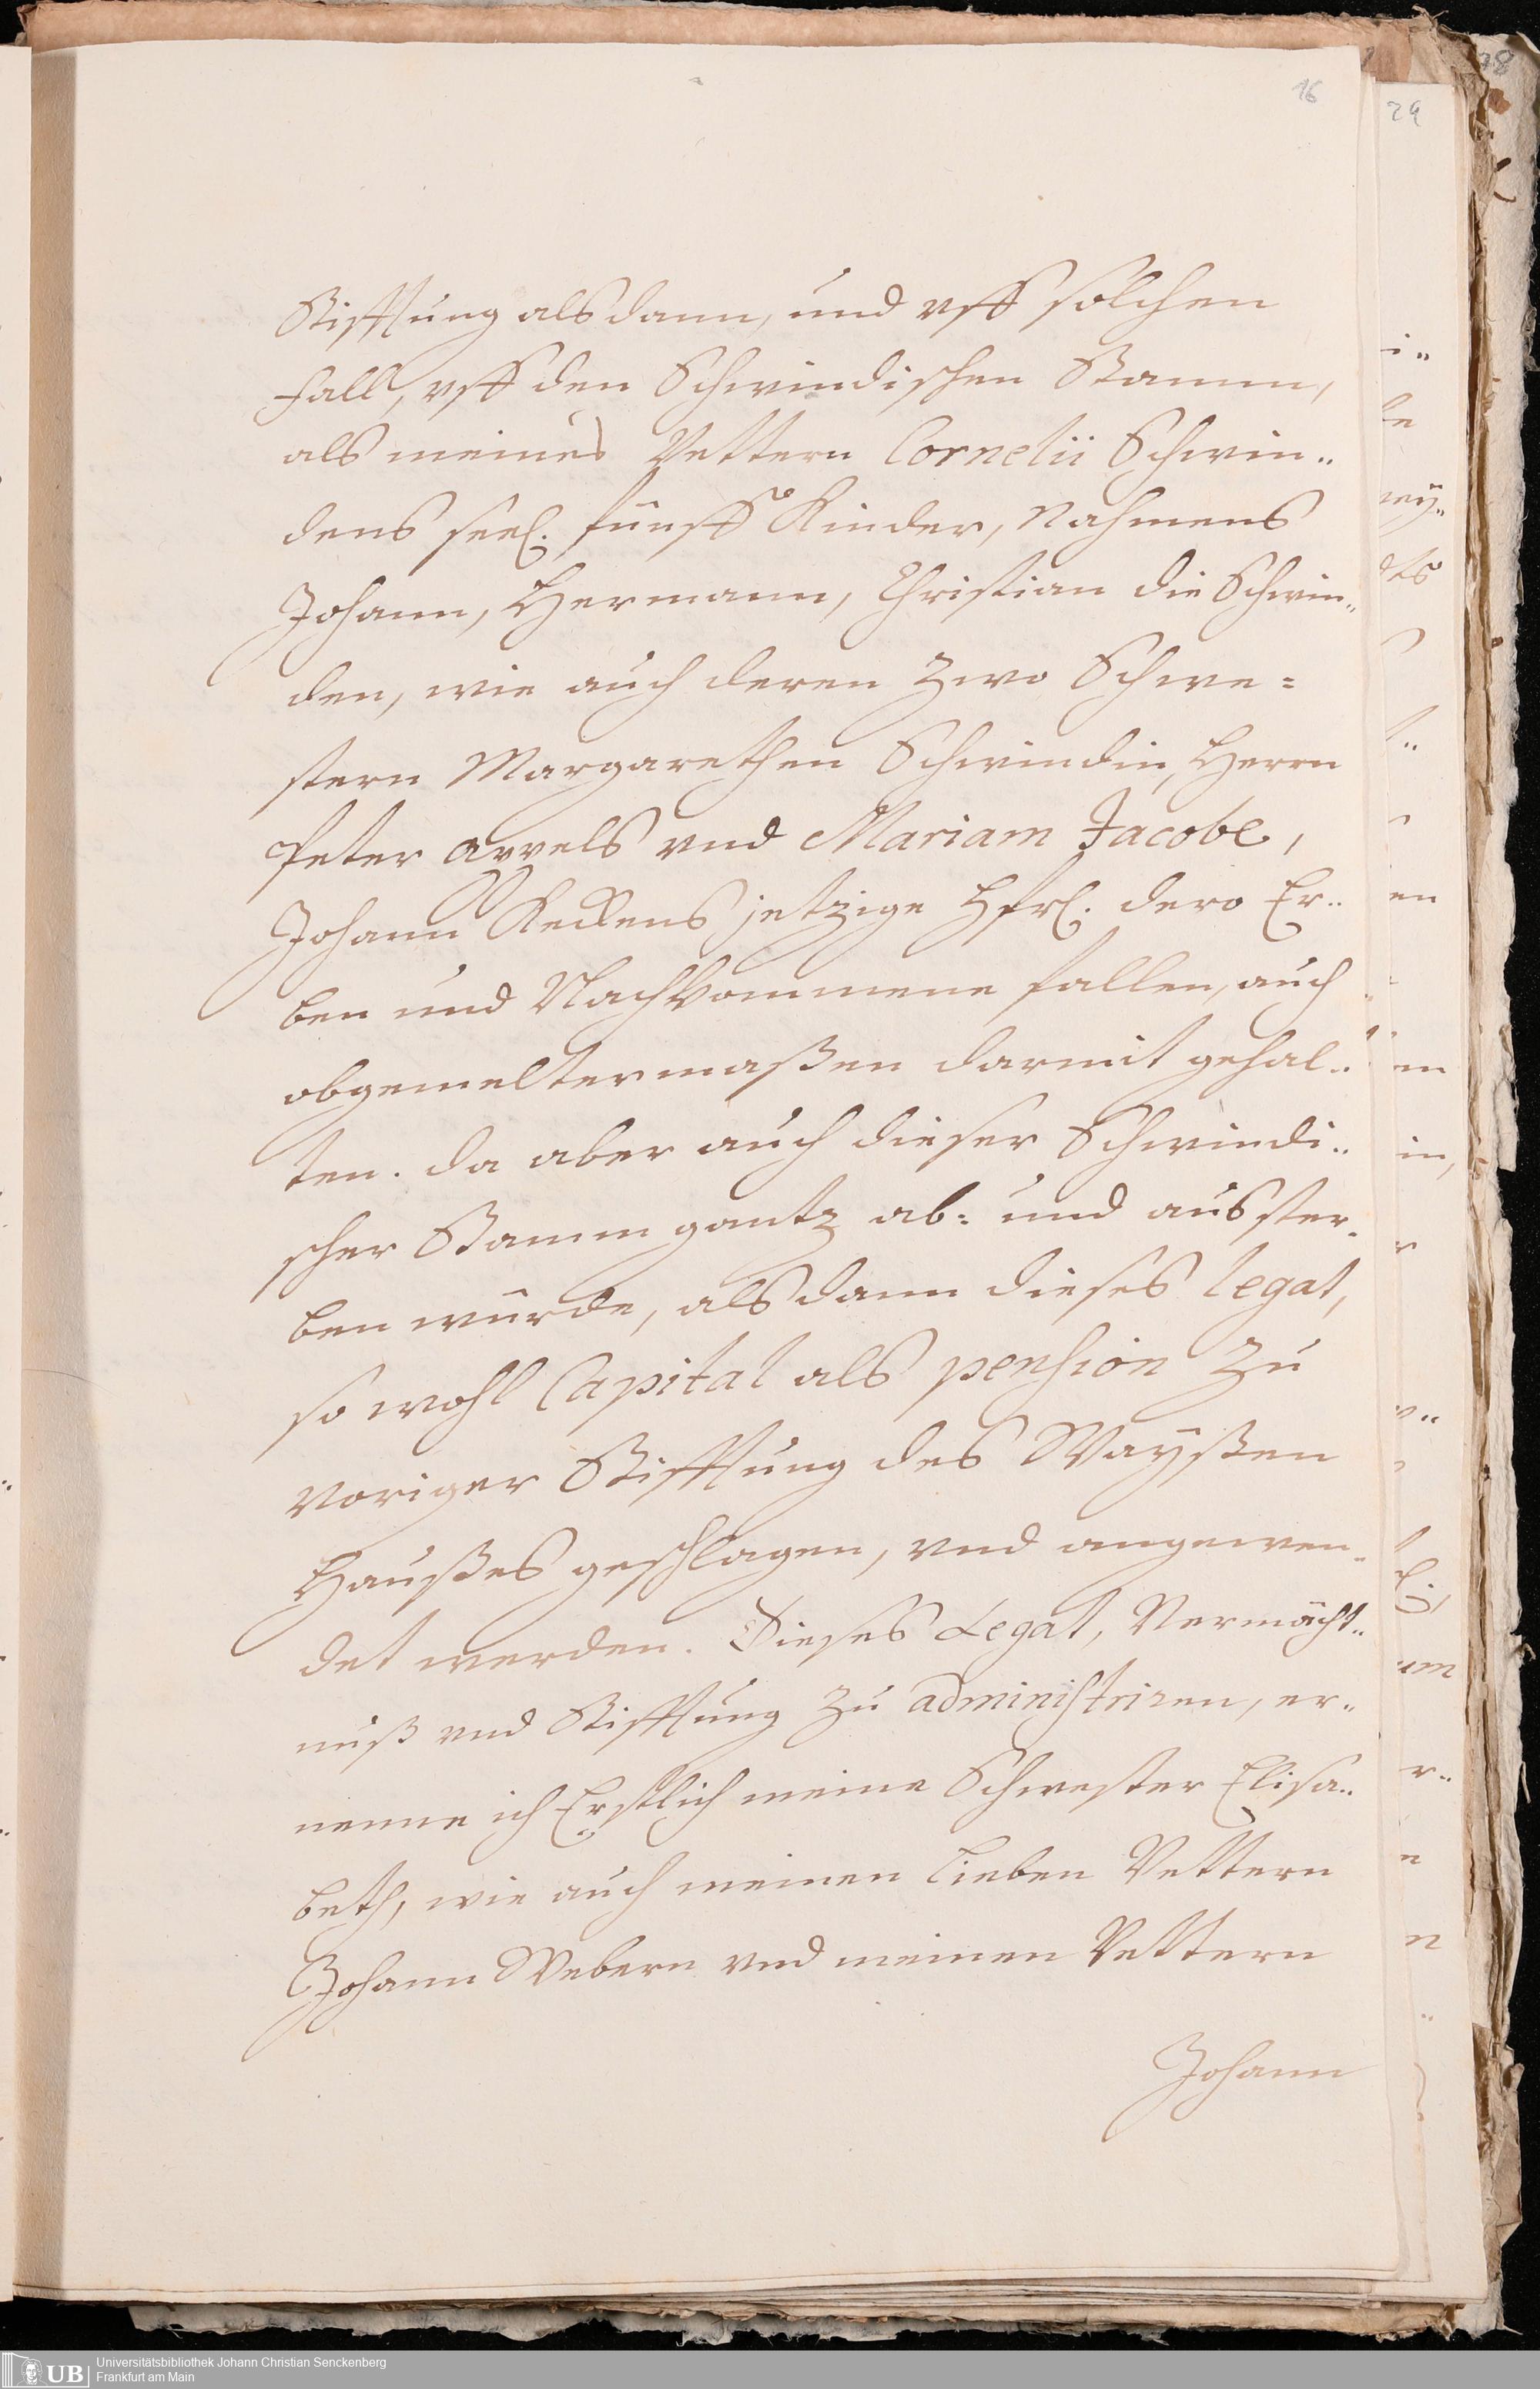 16
29
Stifftung alsdann, und vff solchen
Fall, vff den Schwindischen Stamm,
als meines Vettern Cornelii Schwin¨
dens seel. fünff Kinder, Nahmens
Johann, Hermann, Christian die Schwin¨
den, wie auch deren zwo Schwe=
stern Margarethen Schwindin, Herrn
Peter Appels vnd Mariam Jacobe,
Johann jetzige Hfrl. dero Er¨
ben und Nachkommene fallen, auch
obgemeltermaßen darmit gehal¨
ten. da aber auch dieser Schwindi¨
scher Stamm gantz ab= und ausster¨
ben würde, alsdann dieses legat,
so wohl Capital als pension zu
voriger Stifftung des Wayßen
Haußes geschlagen, vnd angewen¨
det werden. Dieses Legat, Vermächt¨
nuß vnd Stifftung zu administriren, er¨
nenne ich Erstlich meine Schwester Elisa¨
beth, wie auch meinen lieben Vettern
Johann Webern vnd meinen Vettern
Johann
UB Universitätsbibliothek Johann Christian Senckenberg
Frankfurt am Main